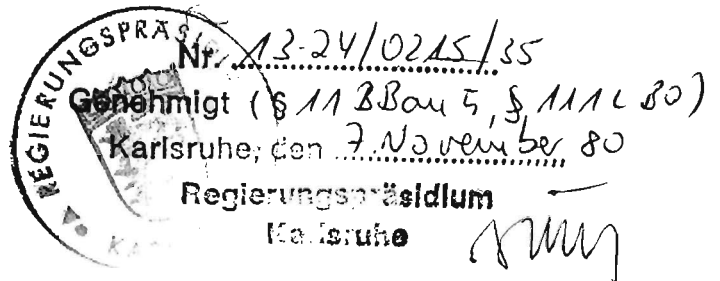 REGIERUNGSPRÄSI
Nr. 13-24/0215/35
Genehmigt (§ 11 BBauG, § 111 LBO)
Karlsruhe, den 7. November 80
Regierungspräsidium
Karlsruhe